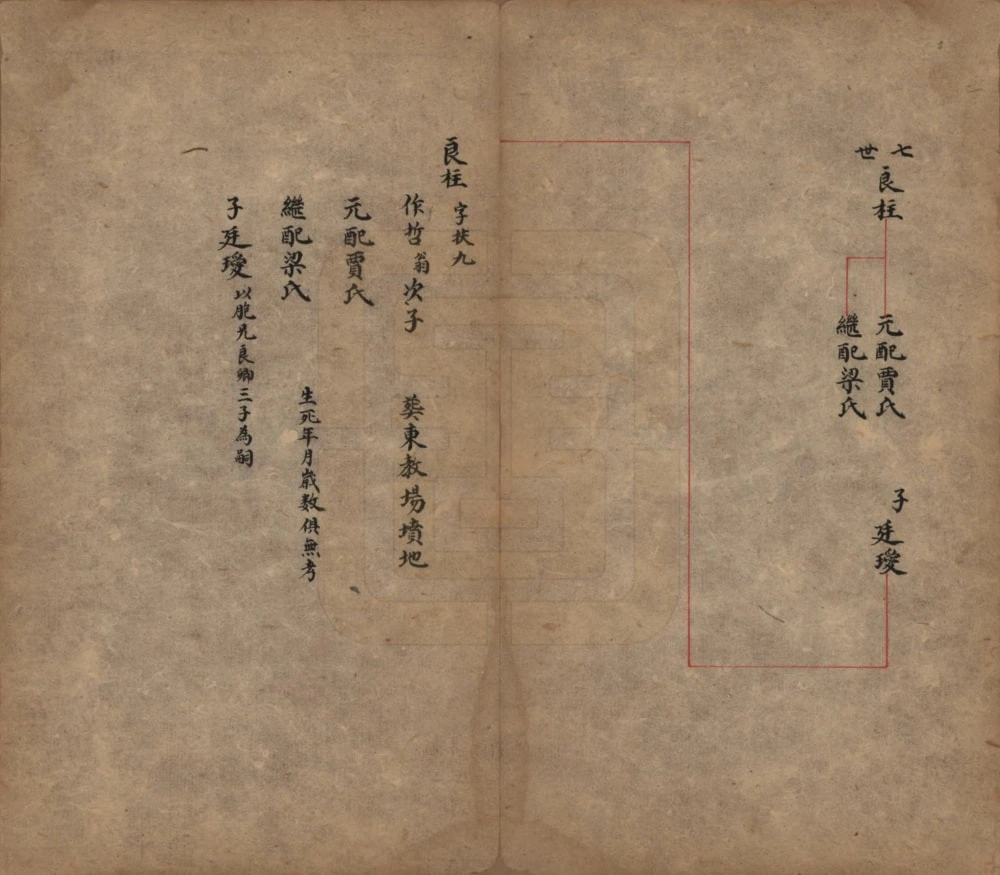 七世
良柱
元配賈氏
繼配梁氏
子廷瑷
良柱 字扶九
作哲翁次子 葬東教場墳地
元配賈氏
繼配梁氏 生死年月歲数俱無考
子廷瑷 以胞兄良卿三子為嗣
一